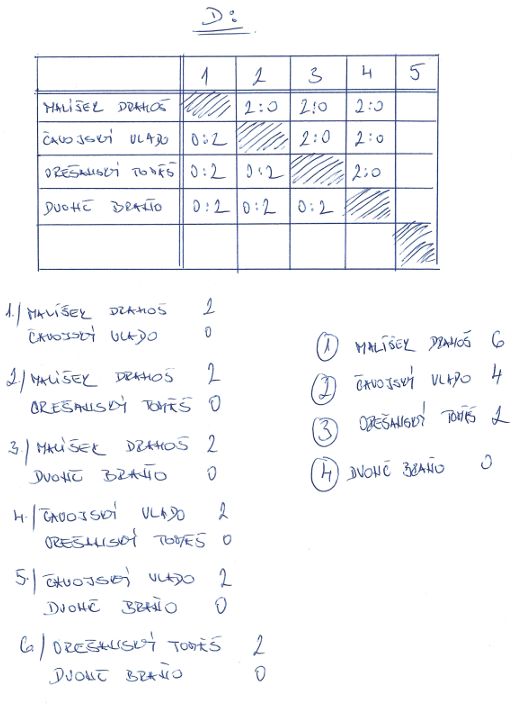 D:
1 2 3 4 5
MALÍŠEK DRAHOŠ 2:0 2:0 2:0
ČAVOJSKÝ VLADO 0:2 2:0 2:0
OREŠANSKÝ TOMÁŠ 0:2 0:2 2:0
DVONČ BRAŇO 0:2 0:2 0:2
1./ MALÍŠEK DRAHOŠ 2
ČAVOJSKÝ VLADO 0
2./ MALÍŠEK DRAHOŠ 2
OREŠANSKÝ TOMÁŠ 0
3./ MALÍŠEK DRAHOŠ 2
DVONČ BRAŇO 0
4./ ČAVOJSKÝ VLADO 2
OREŠANSKÝ TOMÁŠ 0
5./ ČAVOJSKÝ VLADO 2
DVONČ BRAŇO 0
6./ OREŠANSKÝ TOMÁŠ 2
DVONČ BRAŇO 0
1 MALÍŠEK DRAHOŠ 6
2 ČAVOJSKÝ VLADO 4
3 OREŠANSKÝ TOMÁŠ 2
4 DVONČ BRAŇO 0